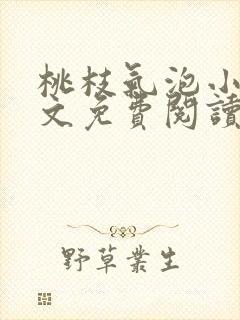 桃枝氣泡小
文免費閱讀
野草叢生